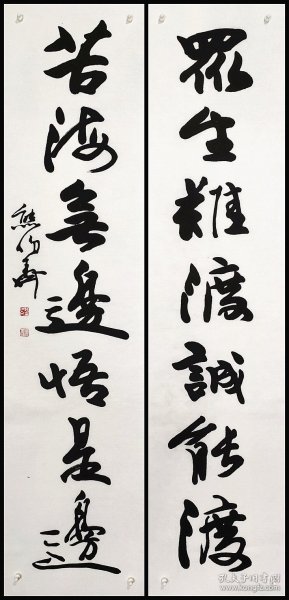 眾生難渡誠能渡
苦海無邊悟是邊
熊伯齊
孔夫子旧书网